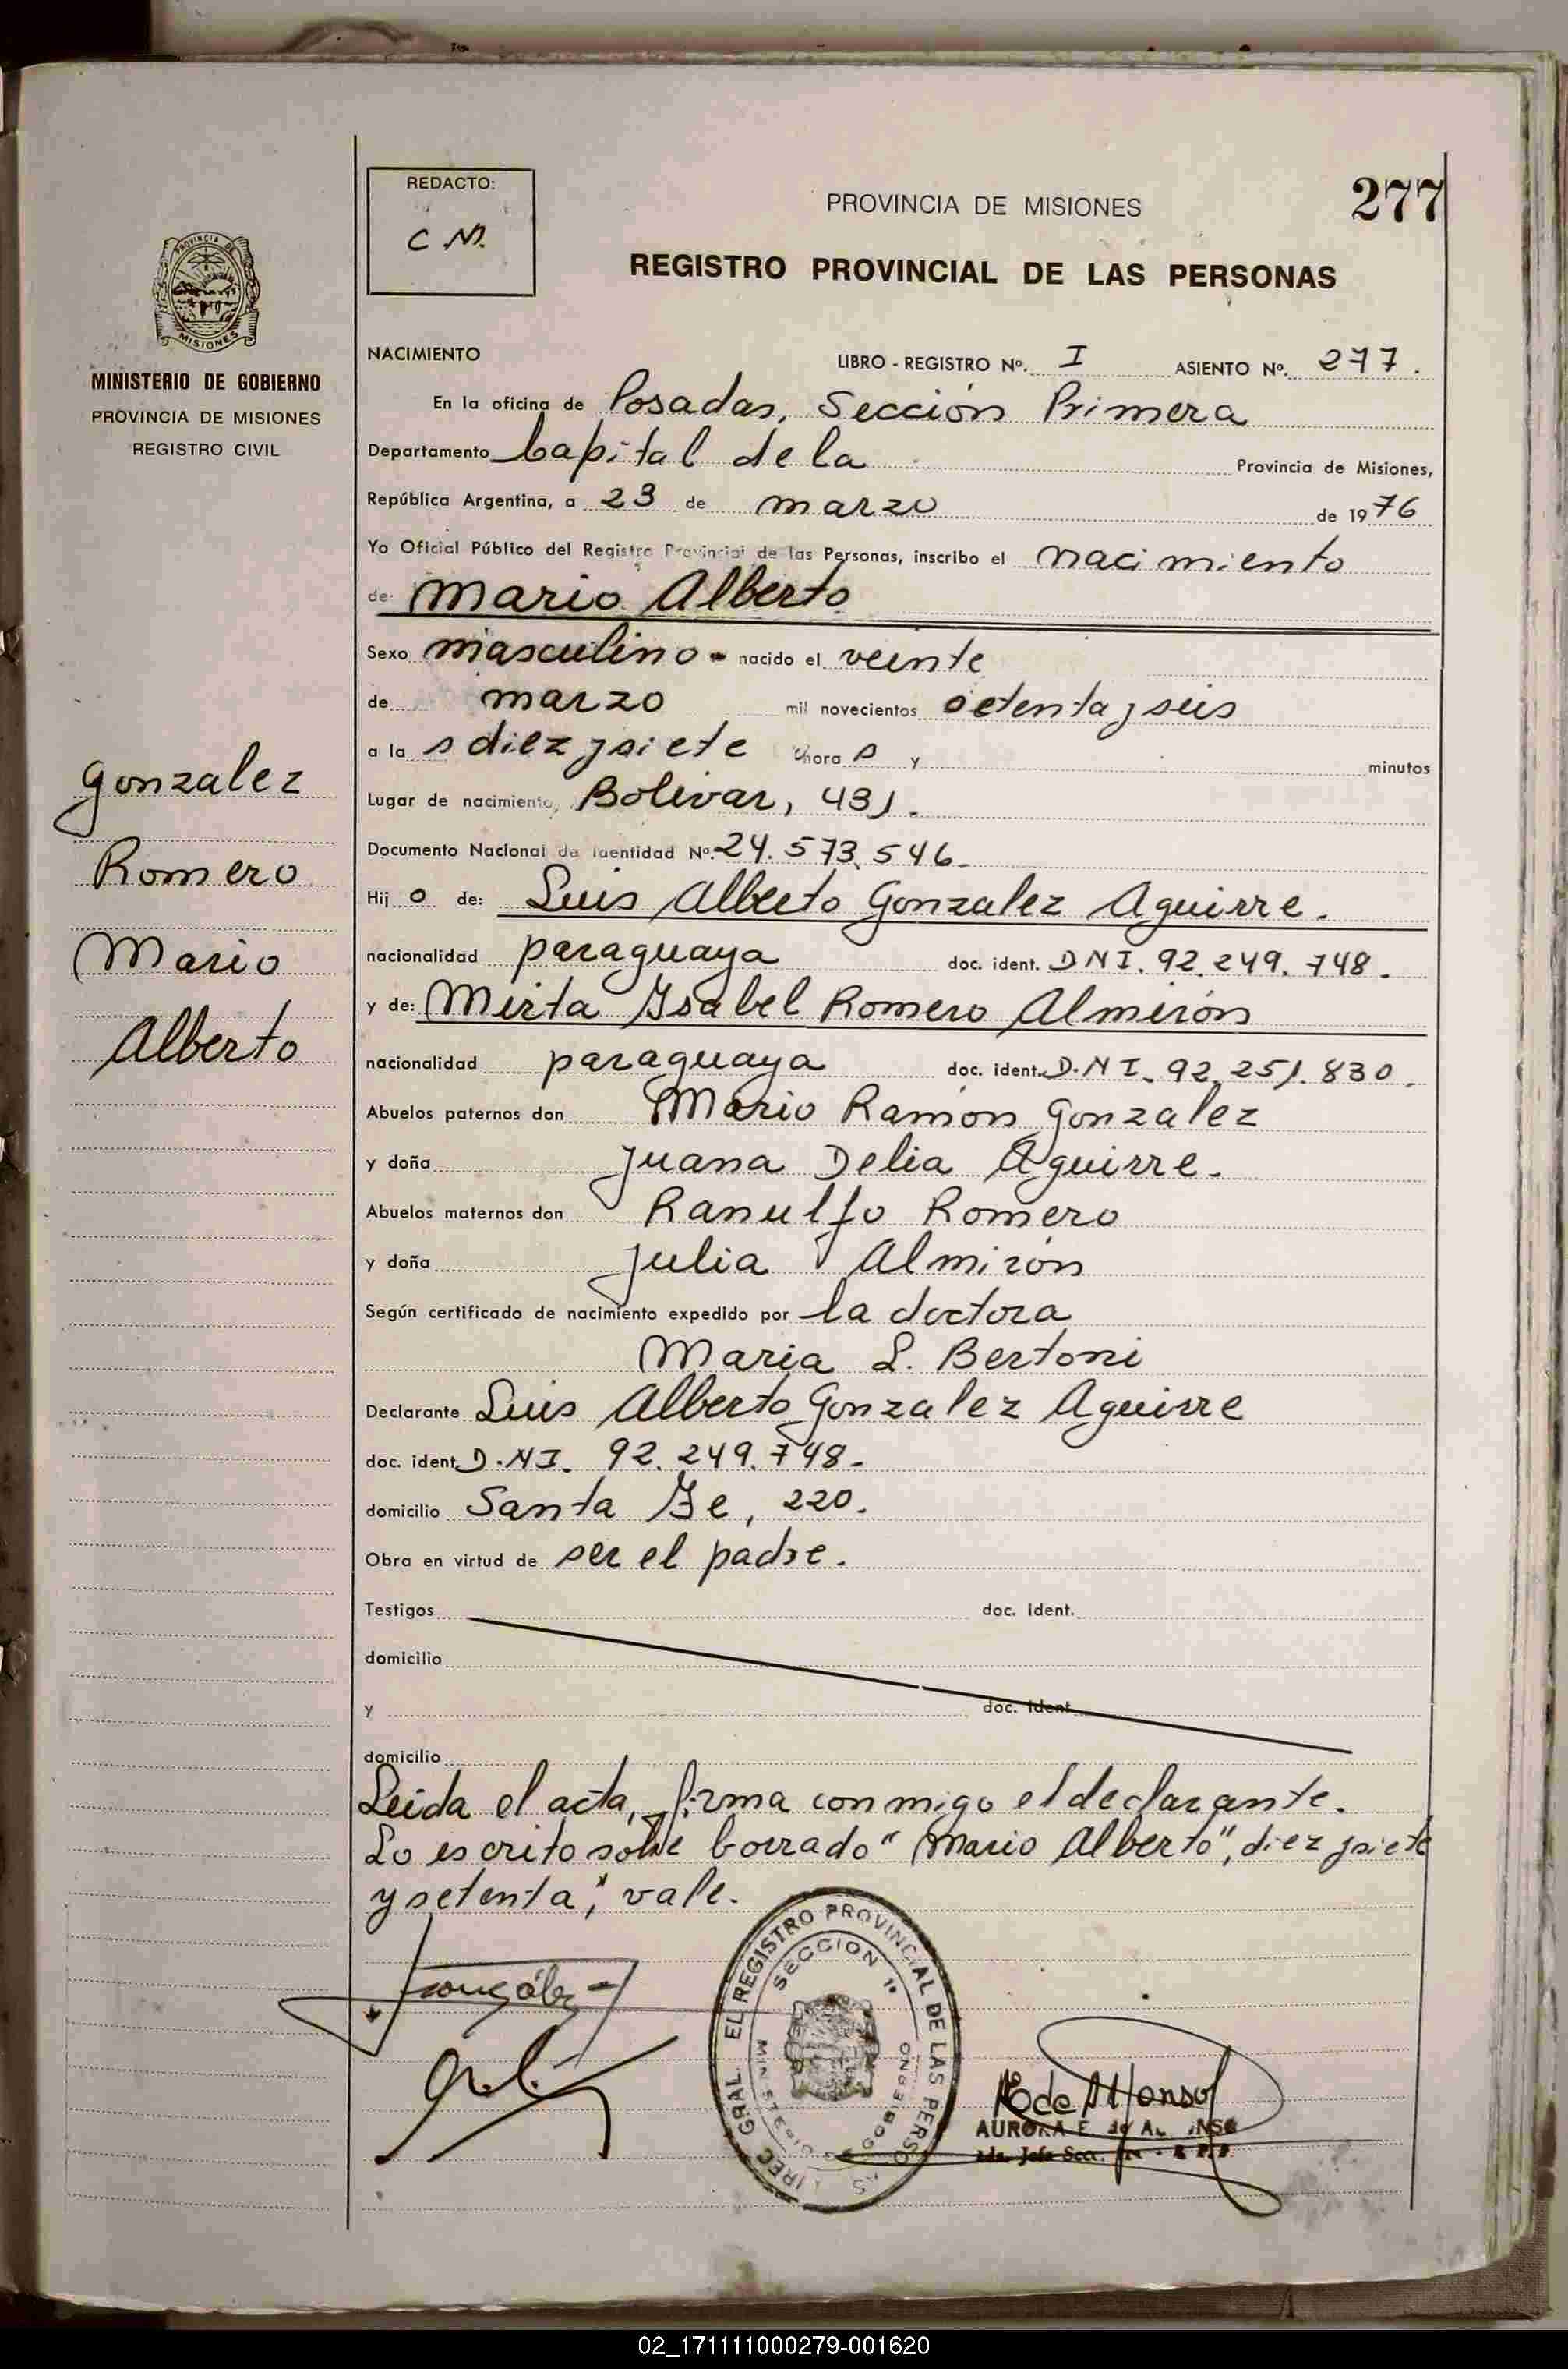 REDACTO:
C.M.
PROVINCIA DE MISIONES
277
REGISTRO PROVINCIAL DE LAS PERSONAS
PROVINCIA DE
MISIONES
MINISTERIO DE GOBIERNO
PROVINCIA DE MISIONES
REGISTRO CIVIL
Gonzalez
Romero
Mario
Alberto
NACIMIENTO LIBRO - REGISTRO Nº. I ASIENTO Nº. 277.
En la oficina de Posadas, Sección Primera
Departamento Capital de la Provincia de Misiones,
República Argentina, a 23 de marzo de 1976
Yo Oficial Público del Registro Provincial de las Personas, inscribo el nacimiento
de Mario Alberto
Sexo masculino - nacido el veinte
de marzo mil novecientos setenta y seis
a la s diez y siete hora s y minutos
Lugar de nacimiento, Bolivar, 431.
Documento Nacional de Identidad Nº. 24.573.546-
Hij o de: Luis Alberto Gonzalez Aguirre.
nacionalidad paraguaya doc. ident. DNI. 92.249.748.
y de: Mirta Isabel Romero Almirón
nacionalidad paraguaya doc. ident. D.N I. 92.251.830.
Abuelos paternos don Mario Ramón Gonzalez
y doña Juana Delia Aguirre.
Abuelos maternos don Ranulfo Romero
y doña Julia Almirón
Según certificado de nacimiento expedido por la doctora
Maria L. Bertoni
Declarante Luis Alberto Gonzalez Aguirre
doc. ident. D.NI. 92.249.748-
domicilio Santa Fe, 220.
Obra en virtud de ser el padre.
Testigos doc. ident.
domicilio
y doc. ident.
domicilio
Leida el acta, firma conmigo el declarante.
Lo escrito sobre borrado "Mario Alberto", diez y siete
y setenta", vale.
González
DIREC. GRAL. EL REGISTRO PROVINCIAL DE LAS PERSONAS
SECCION 1ª
MINISTERIO DE GOBIERNO
E de Alfonso
AURORA E. de ALFONSO
Jefa Secc.
02_171111000279-001620